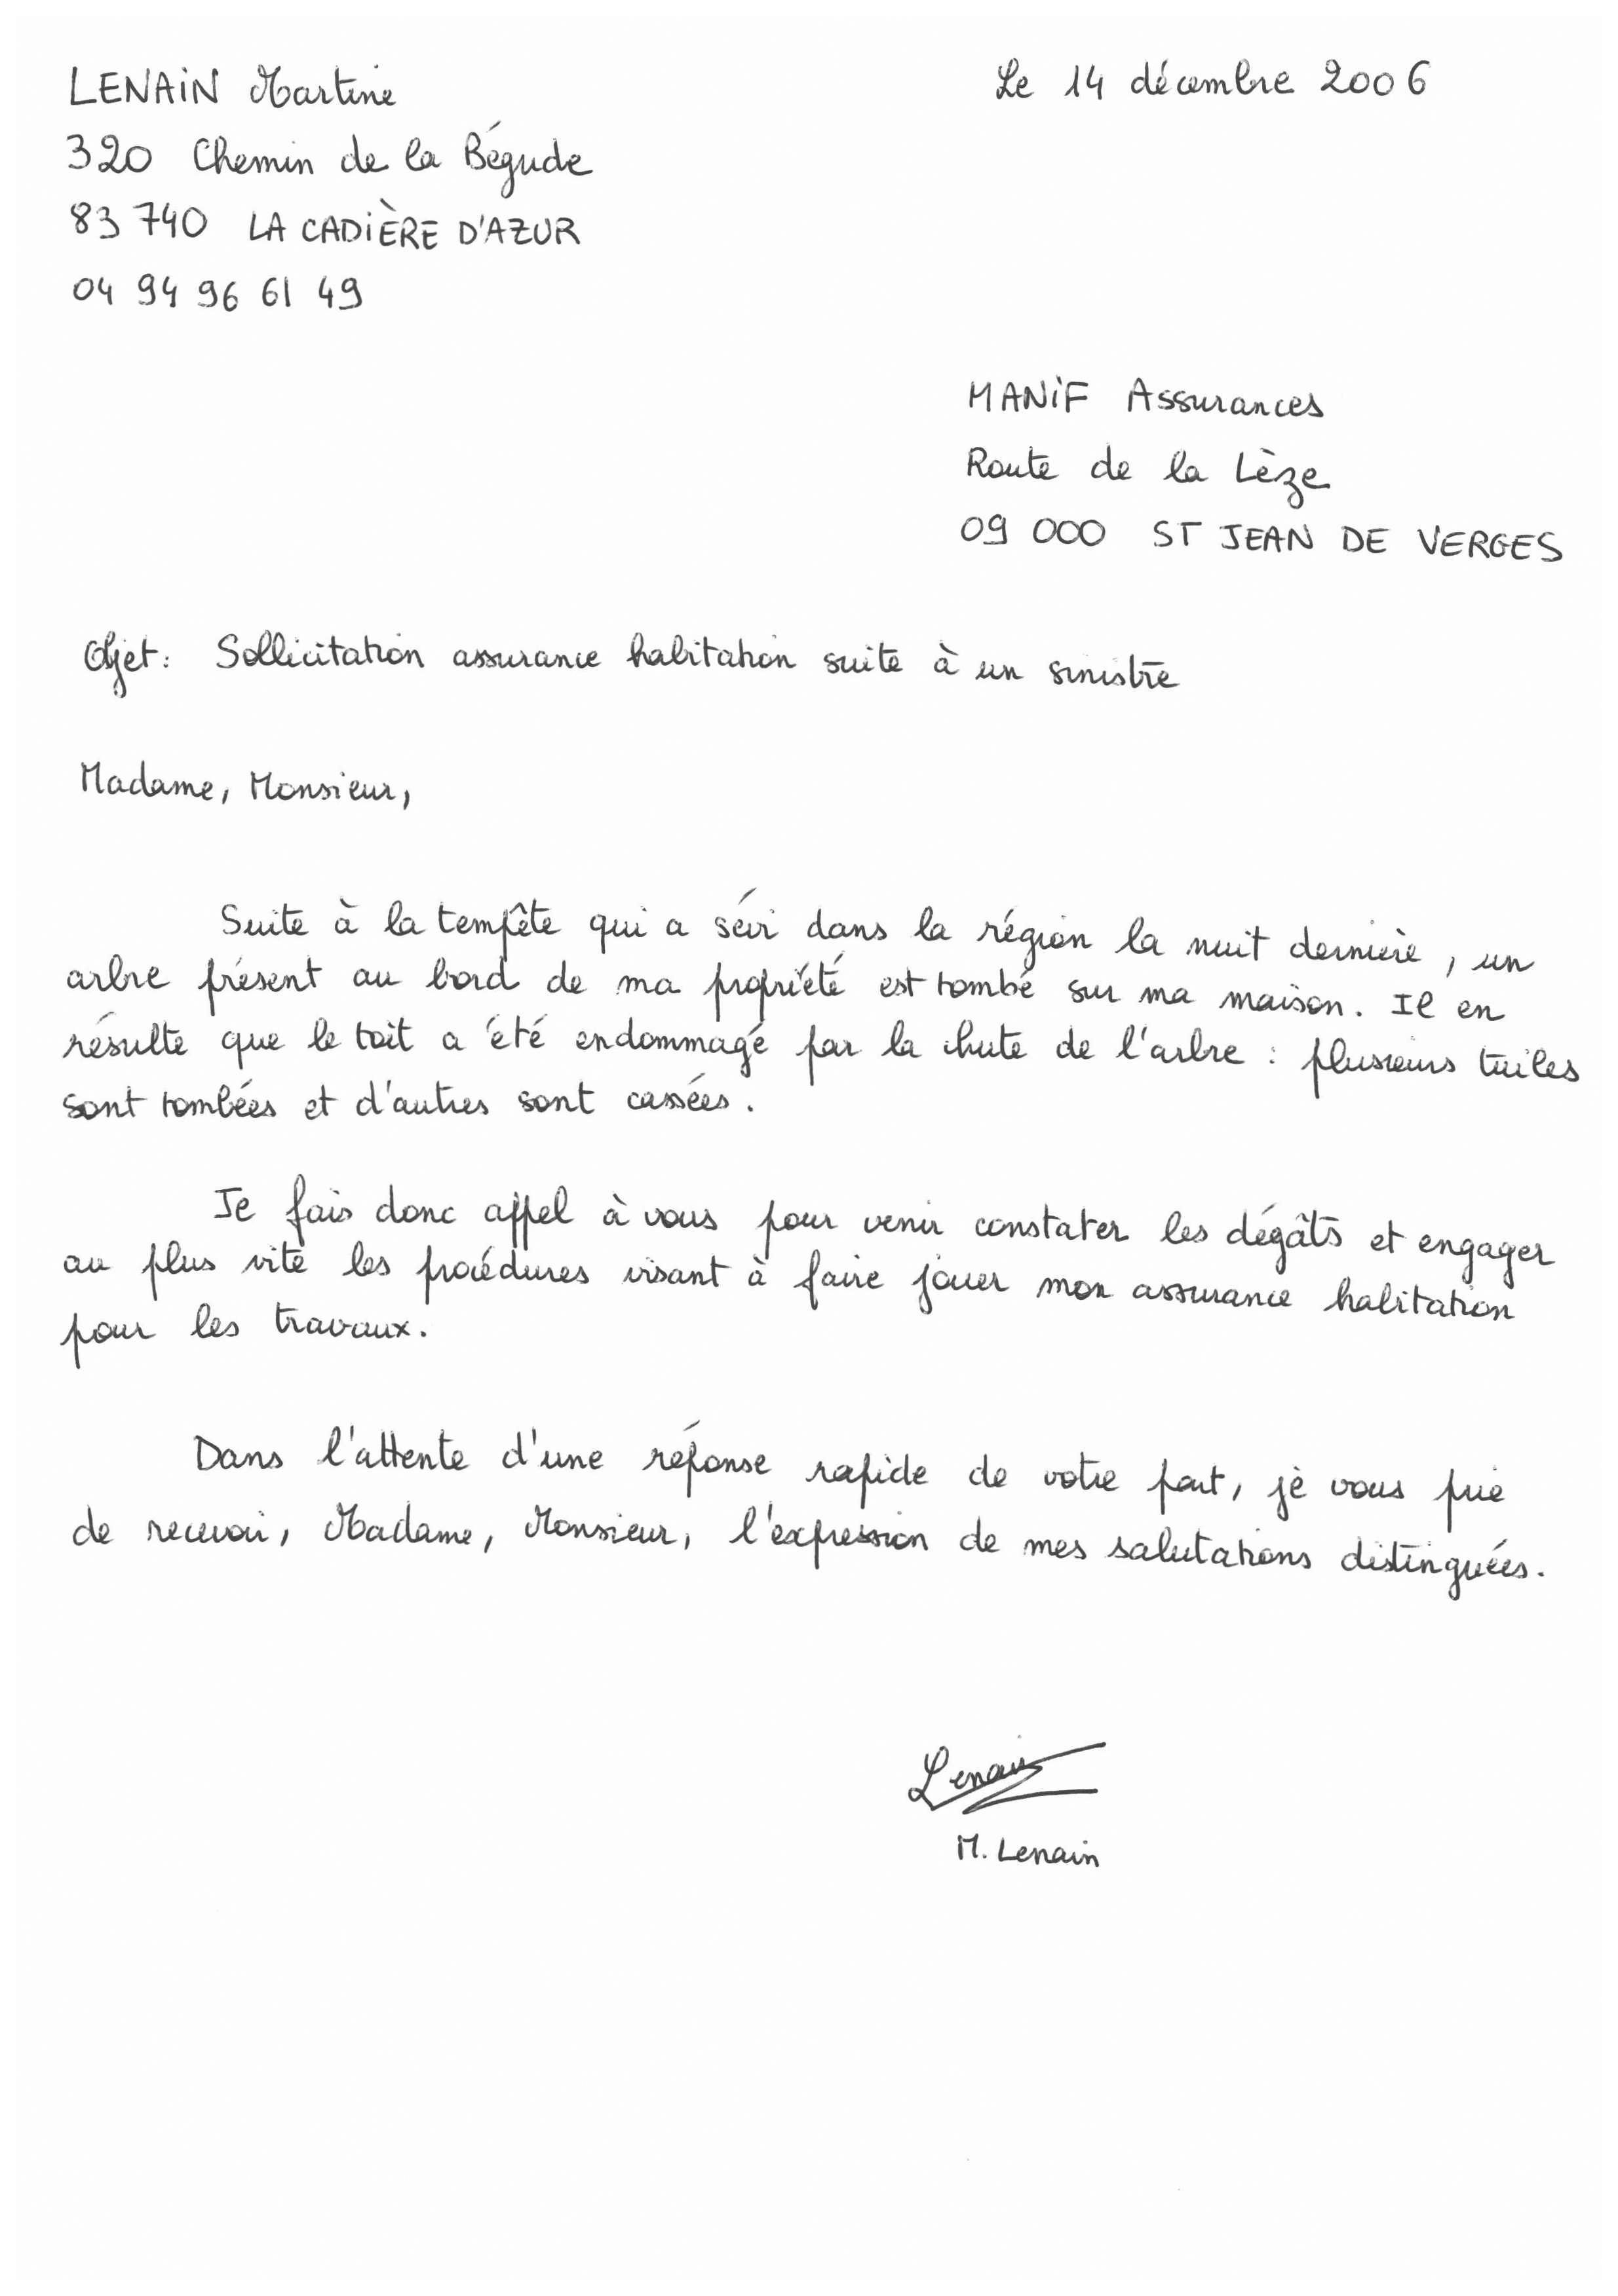 LENAIN Martine
Le 14 décembre 2006
320 Chemin de la Bégude
83 740 LA CADIÈRE D'AZUR
04 94 96 61 49
MANIF Assurances
Route de la Lèze
09 000 ST JEAN DE VERGES
Objet : Sollicitation assurance habitation suite à un sinistre
Madame, Monsieur,
Suite à la tempête qui a sévi dans la région la nuit dernière, un
arbre présent au bord de ma propriété est tombé sur ma maison. Il en
résulte que le toit a été endommagé par la chute de l'arbre : plusieurs tuiles
sont tombées et d'autres sont cassées.
Je fais donc appel à vous pour venir constater les dégâts et engager
au plus vite les procédures visant à faire jouer mon assurance habitation
pour les travaux.
Dans l'attente d'une réponse rapide de votre part, je vous prie
de recevoir, Madame, Monsieur, l'expression de mes salutations distinguées.
Lenain
M. Lenain